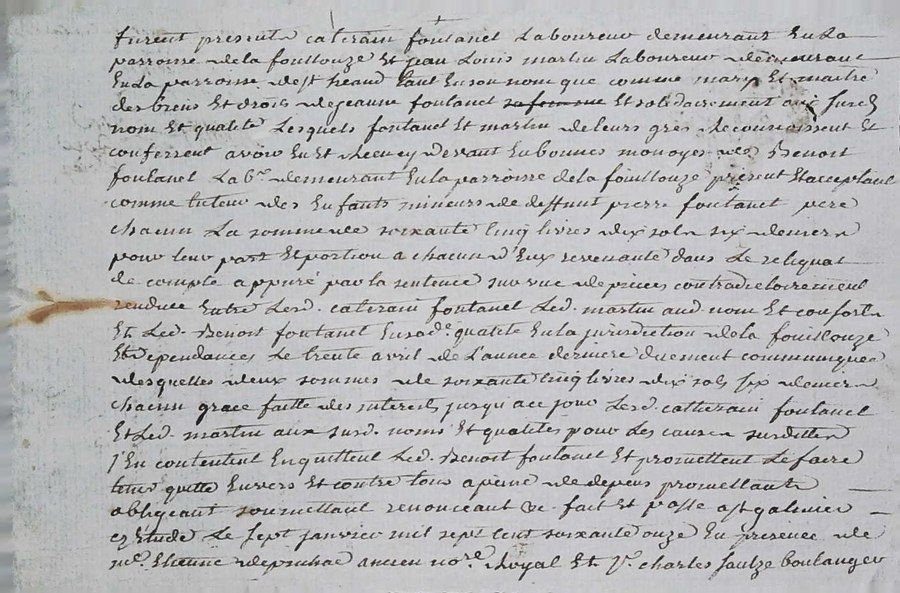 furent presents caterain fontanel Laboureur demeurant En La
parroisse de la fouillouze Et jean Louis martin Laboureur demeurant
En La parroisse de st heand tant En son nom que comme mary Et maitre
des biens Et droits de jeanne fontanel sa femme Et solidairement aux surd.
nom Et qualité Lesquels fontanel Et martin de leurs gres Reconnoissent Et
confessent avoir Eu Et Receu cy devant En bonnes monoyes de Benoit
fontanel Lab.r demeurant En la parroisse de la fouillouze present Et acceptant
comme tuteur des Enfants mineurs de deffunt pierre fontanel pere
chacun La somme de soixante cinq livres dix sols six deniers
pour leur part Et portion a chacun d'Eux revenante dans Le reliquat
de compte appuré par la sentence sur vue de pieces contradictoirement
rendue Entre Lesd. caterain fontanel Led. martin aud. nom Et consorts
Et Led. Benoit fontanel En sad. qualité En la jurisdiction de la fouillouze
Et Dependances Le trente avril de L'année derniere duement communiquée
desquelles deux sommes de soixante cinq livres dix sols six deniers
chacun grace faitte des interets jusqu'a ce jour Lesd. catherain fontanel
Et Led. martin aux surd. noms Et qualités pour Les causes surdittes
s'En contentent En quittent Led. Benoit fontanel Et promettent Le faire
tenir quitte Envers Et contre tous a peine de depens promettants
obligeant soumettant renonceant &c. fait Et passé a st galmier
Etude Le sept janvier mil sept cent soixante onze En presence de
m.e Etienne ancien no.re Royal Et s.r charles boulanger